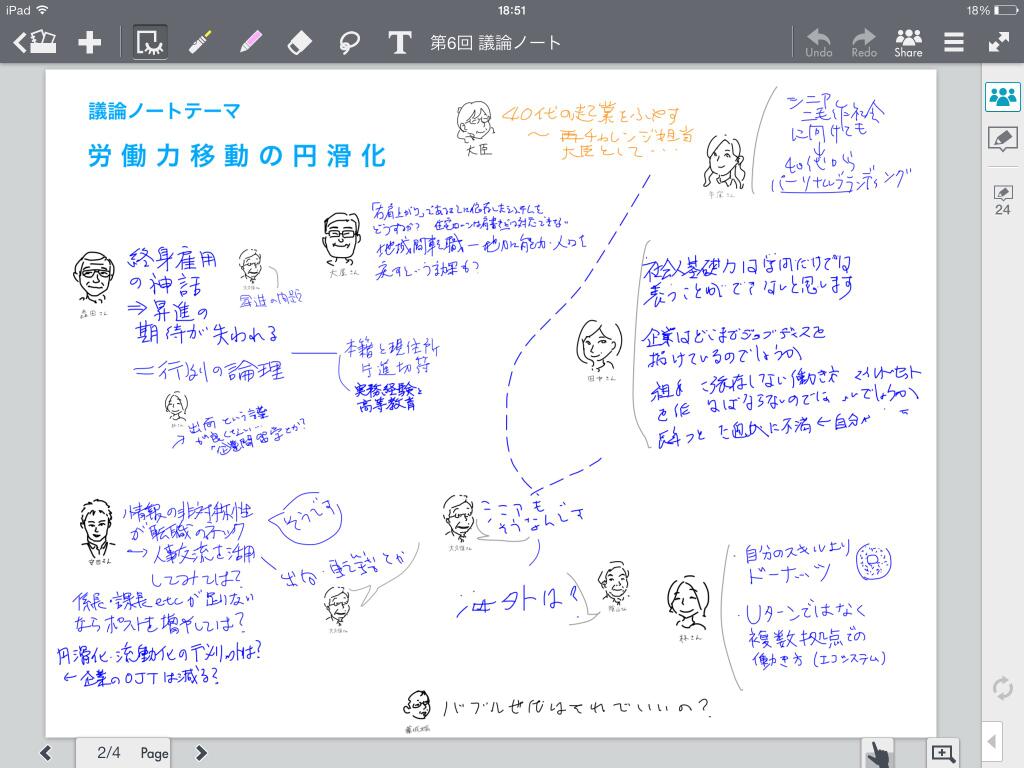 iPad
18:51
18%
第6回 議論ノート
Undo
Redo
Share
24
議論ノートテーマ
労働力移動の円滑化
大臣
40代の起業をふやす
〜再チャレンジ担当
大臣として・・・
シニア
二毛作社会
に向けても
↓
40代から
パーソナルブランディング
大屋さん
「右肩上がり」であることに依存したシステムを
どうするか?
地域間転職―地方に能力・人つを
戻すという効果も?
森田さん
終身雇用
の神話
⇒昇進の
期待が失われる
=行列の論理
昇進の問題
本籍と現住所
片道切符
実務経験と
高等教育
出向という
が良くない…
企業間留学とか?
田中さん
社会人基礎力は だけでは
養うことができないと思います
企業はどこまでジョブディスを
描けているのでしょうか
組 に依存しない働き方 マインドセット
を ばならないのでは でしょうか
に不満 ← 自分
安田さん
情報の非対称性
が転職のネック
→人事交流を活用
してみては?
係長・課長etcが足りない
ならポストを増やしては?
円滑化・流動化のデメリットは?
← 企業のOJTは減る?
そうです
出向・転籍とか
大久保さん
シニアも
そうなんです
大久保さん
は?
林さん
・自分のスキル上り
ドーナッツ
・Uターンではなく
複数拠点での
働き方(エコシステム)
バブル世代はそれでいいの?
2/4 Page